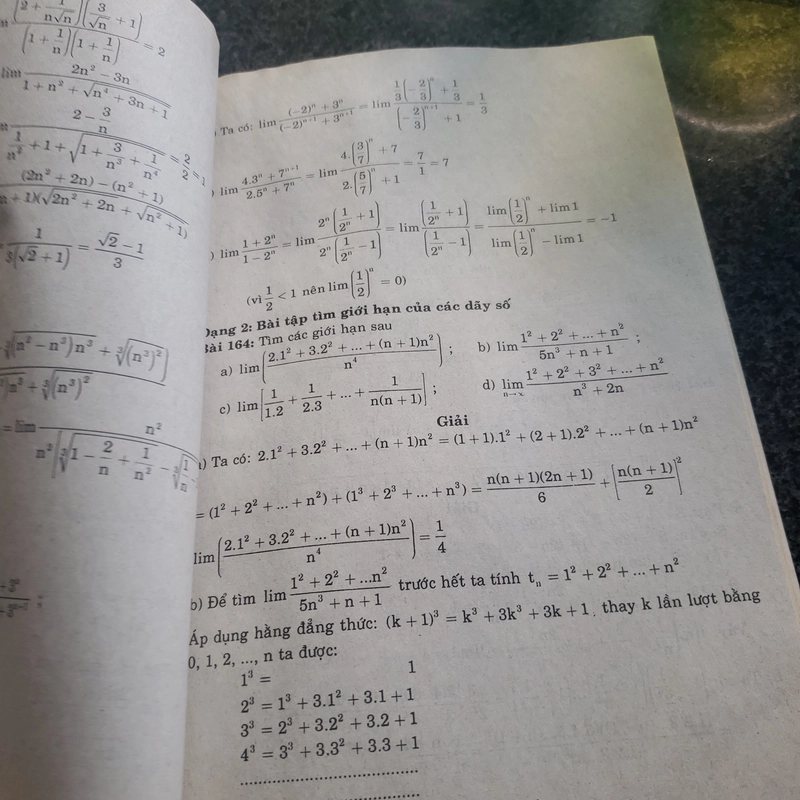 (2 + 1/(n√n))(3/√n + 1) / (1 + 1/n)(1 + 1/n) = 2
lim (2n² − 3n)/(1 + n² + √(n⁴ + 3n + 1))
(2 − 3/n)/(1/n² + 1 + √(1 + 3/n³ + 1/n⁴)) = 2/2 = 1
(2n² + 2n) − (n² + 1)
n + 1)(√(2n² + 2n) + √(n² + 1))
1/(3(√2 + 1)) = (√2 − 1)/3
∛((n² − n³)n³ + ∛(n³)²)
n³ + ∛(n³)²
= lim n²/(n²[∛(1 − 2/n + 1/n²) − ∛(1/n
) Ta có: lim ((−2)ⁿ + 3ⁿ)/((−2)ⁿ⁺¹ + 3ⁿ⁺¹) = lim (1/3(−2/3)ⁿ + 1/3)/((−2/3)ⁿ⁺¹ + 1) = 1/3
) lim (4.3ⁿ + 7ⁿ⁺¹)/(2.5ⁿ + 7ⁿ) = lim (4.(3/7)ⁿ + 7)/(2.(5/7)ⁿ + 1) = 7/1 = 7
) lim (1 + 2ⁿ)/(1 − 2ⁿ) = lim 2ⁿ(1/2ⁿ + 1)/2ⁿ(1/2ⁿ − 1) = lim (1/2ⁿ + 1)/(1/2ⁿ − 1) = (lim(1/2)ⁿ + lim 1)/(lim(1/2)ⁿ − lim 1) = −1
(vì 1/2 < 1 nên lim(1/2)ⁿ = 0)
Dạng 2: Bài tập tìm giới hạn của các dãy số
Bài 164: Tìm các giới hạn sau
a) lim((2.1² + 3.2² + ... + (n + 1)n²)/n⁴) ; b) lim (1² + 2² + ... + n²)/(5n³ + n + 1) ;
c) lim[1/1.2 + 1/2.3 + ... + 1/n(n + 1)] ; d) lim n→∞ (1² + 2² + 3² + ... + n²)/(n³ + 2n)
Giải
a) Ta có: 2.1² + 3.2² + ... + (n + 1)n² = (1 + 1).1² + (2 + 1).2² + ... + (n + 1)n²
= (1² + 2² + ... + n²) + (1³ + 2³ + ... + n³) = n(n + 1)(2n + 1)/6 + [n(n + 1)/2]²
lim((2.1² + 3.2² + ... + (n + 1)n²)/n⁴) = 1/4
b) Để tìm lim (1² + 2² + ...n²)/(5n³ + n + 1) trước hết ta tính tₙ = 1² + 2² + ... + n²
Áp dụng hằng đẳng thức: (k + 1)³ = k³ + 3k³ + 3k + 1. thay k lần lượt bằng
0, 1, 2, ..., n ta được:
1³ = 1
2³ = 1³ + 3.1² + 3.1 + 1
3³ = 2³ + 3.2² + 3.2 + 1
4³ = 3³ + 3.3² + 3.3 + 1
....................................
....................................